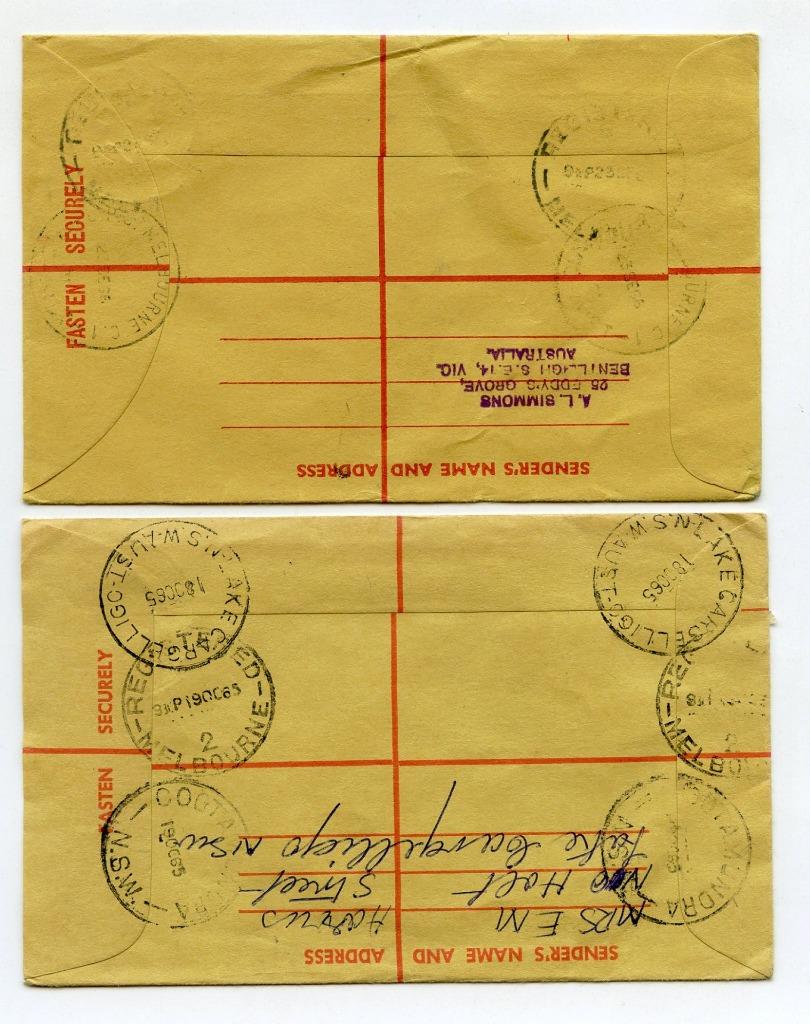 FASTEN SECURELY
MELBOURNE C.1
MELBOURNE C.1
SENDER'S NAME AND ADDRESS
A. L. SIMMONS
25 EDDY'S GROVE,
BENTLEIGH S.E.14, VIC.
AUSTRALIA.
LAKE CARGELLIGO
N.S.W. AUST
18OC65
LAKE CARGELLIGO
N.S.W. AUST
18OC65
REGISTERED
9XP19OC65
2
MELBOURNE
2
MELBOU
FASTEN SECURELY
COOTAMUNDRA
N.S.W.
19OC65
COOTAMUNDRA
N.S.W.
SENDER'S NAME AND ADDRESS
MRS E M
Holt
Harris Street
Lake Cargelligo NSW